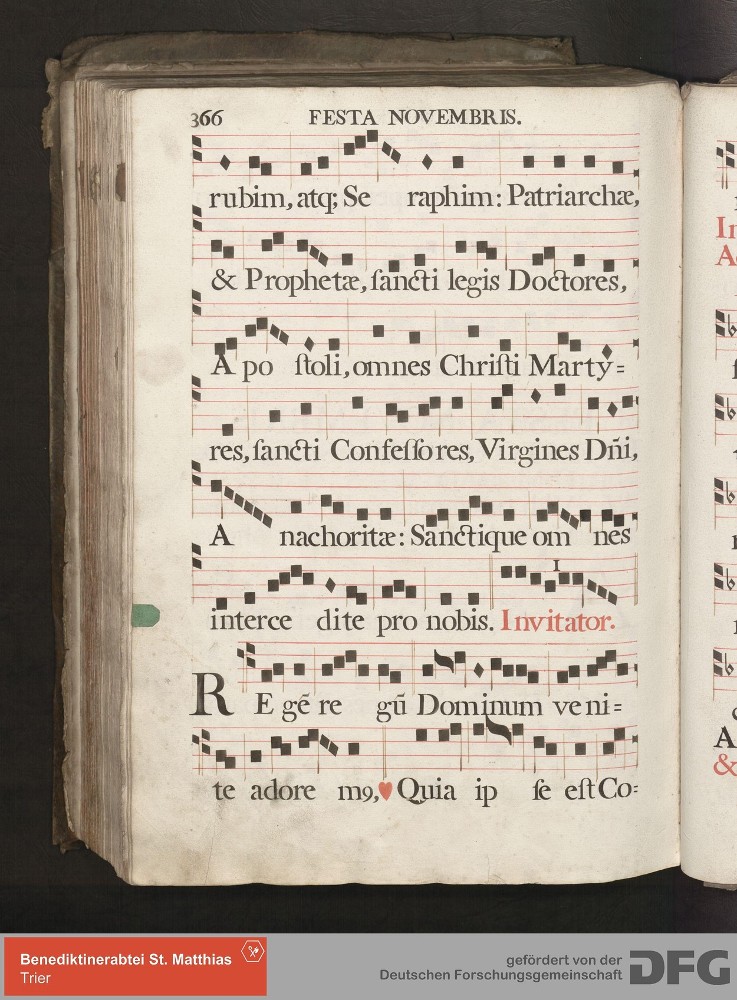 366 FESTA NOVEMBRIS.
rubim, atq; Se raphim: Patriarchæ,
& Prophetæ, ſancti legis Doctores,
A po ſtoli, omnes Chriſti Marty=
res, ſancti Confeſſo res, Virgines Dñi,
A nachoritæ: Sanctique om nes
interce dite pro nobis. Invitator.
R E gē re gū Dominum ve ni=
te adore m9, Quia ip ſe eſt Co=
Benediktinerabtei St. Matthias
Trier
gefördert von der
Deutschen Forschungsgemeinschaft
DFG